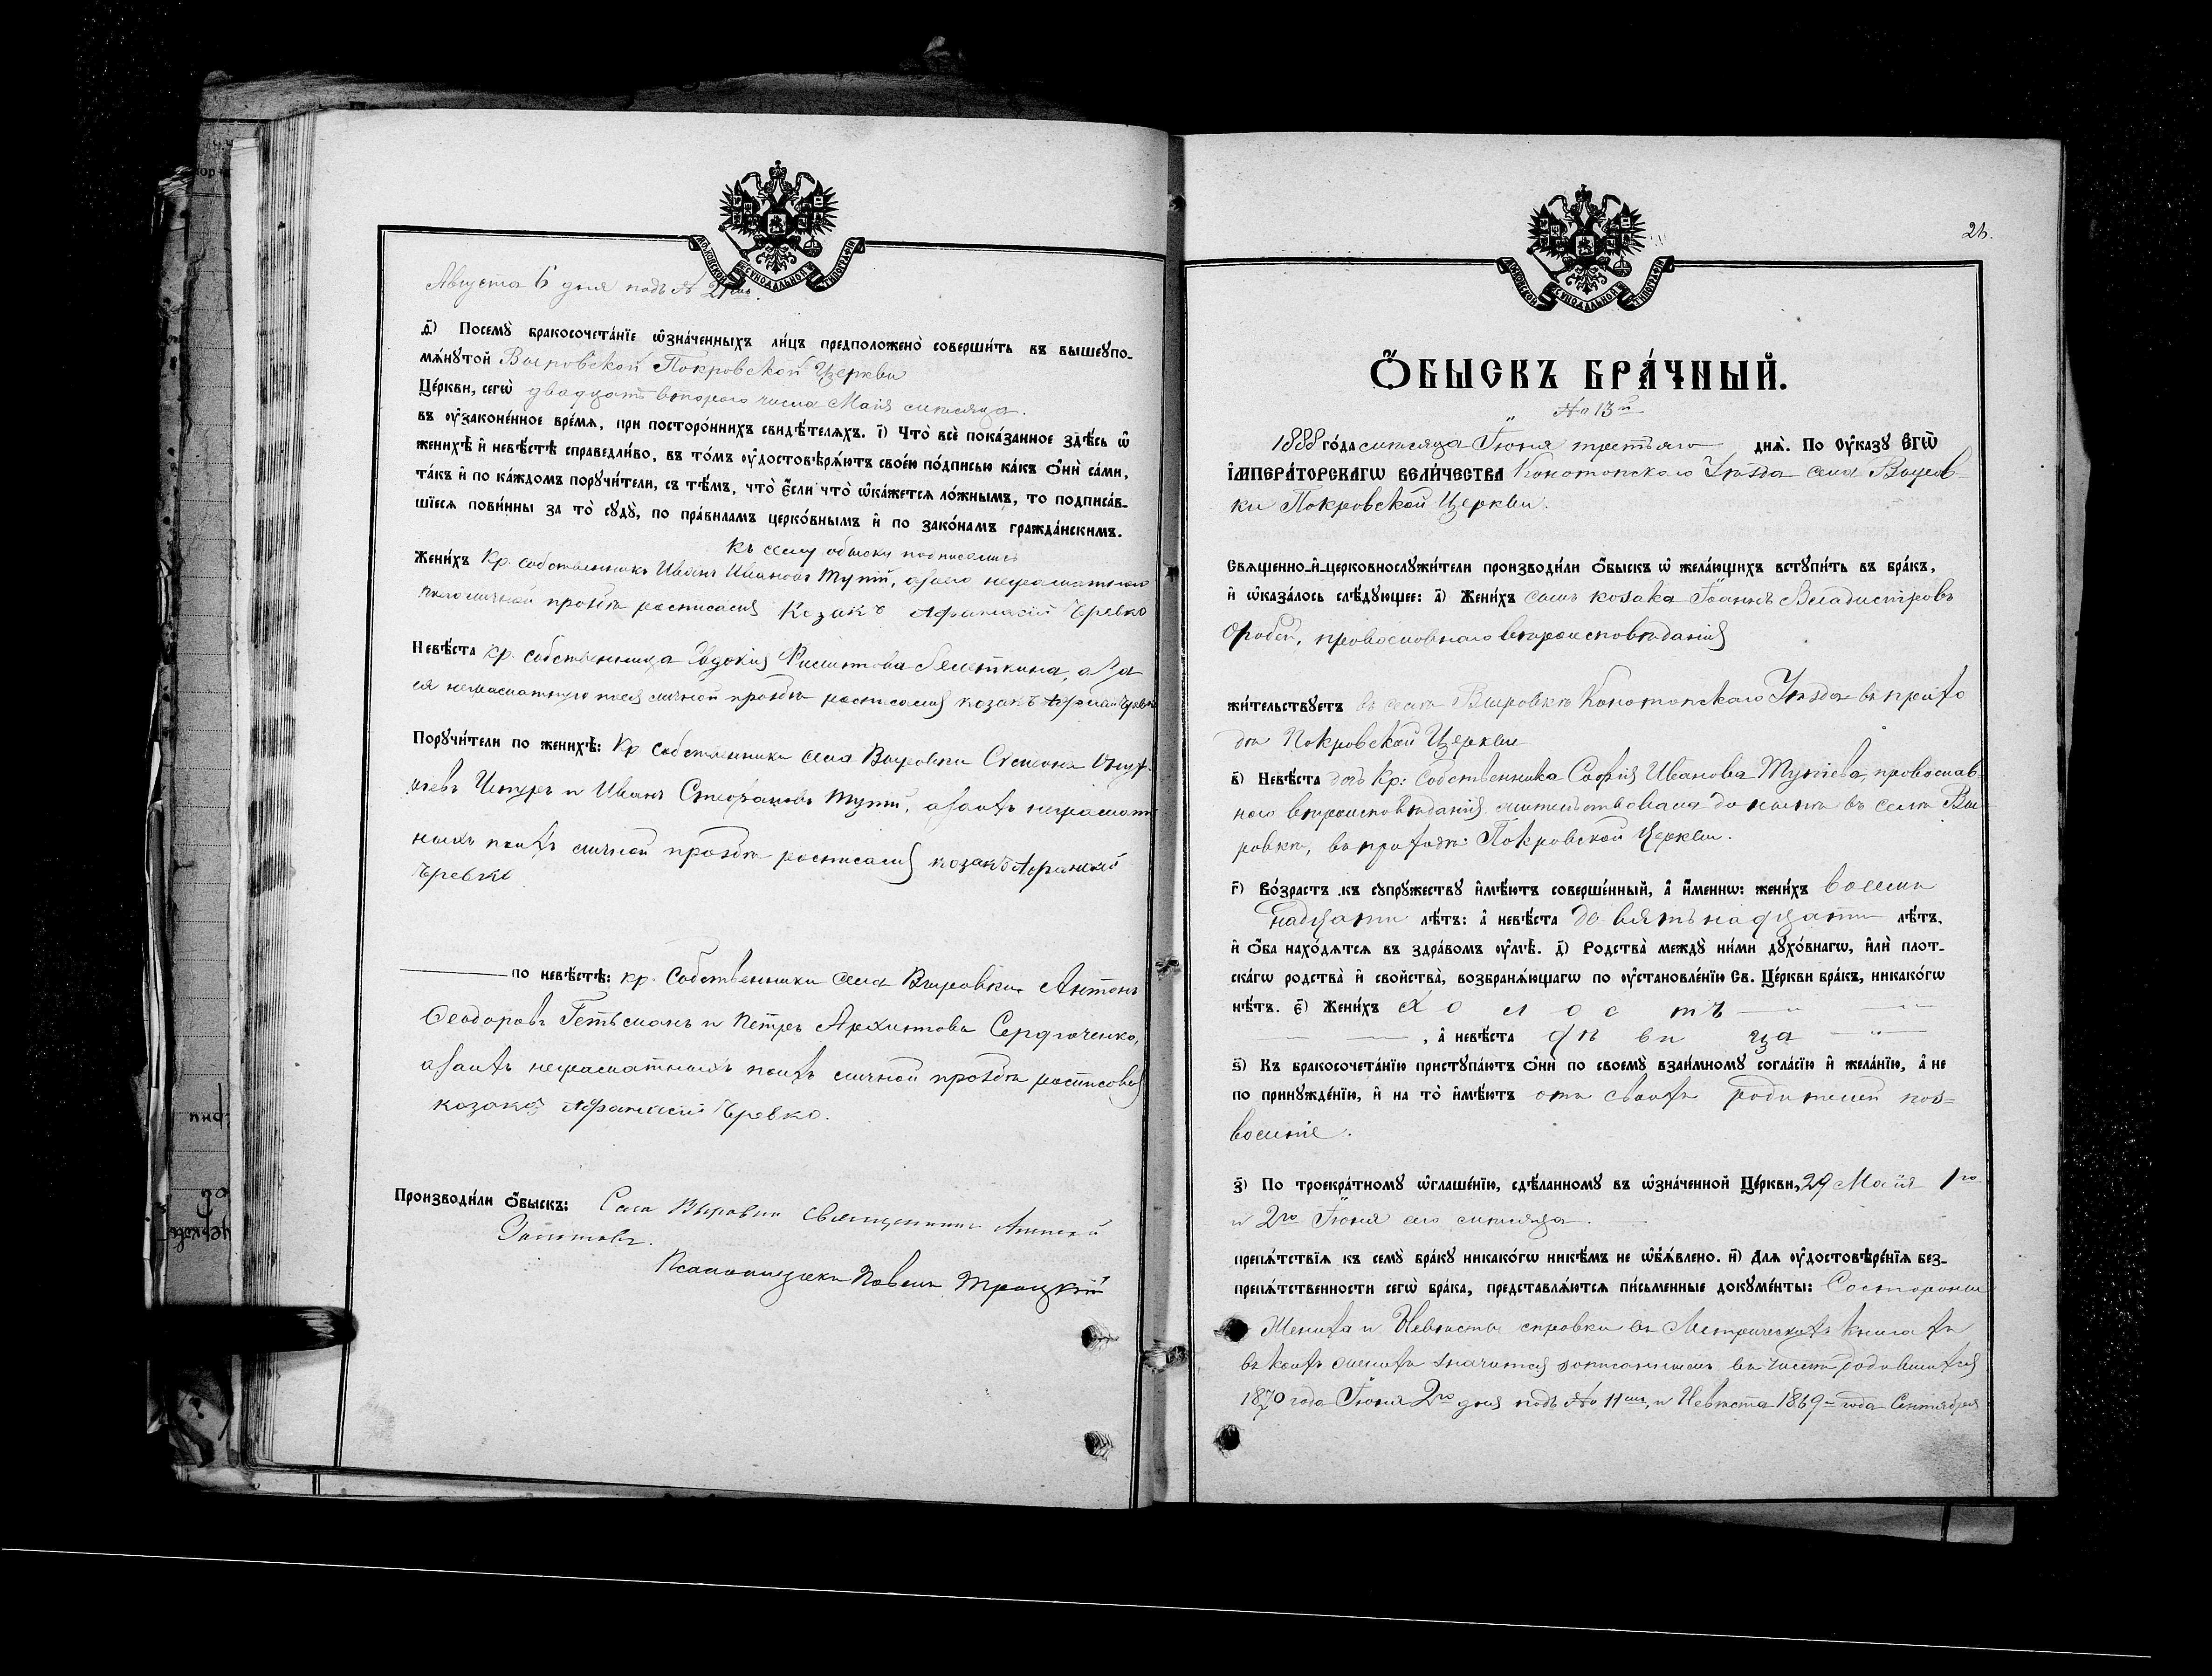 Августа 6 дня подъ № 21мъ.
д҃) Посемꙋ̀ бракосочета́нїе ѡ҆зна́ченныхъ ли́цъ предположено̀ соверши́ть въ вышеꙋпо-
мѧ́нꙋтой Выровской Покровской Церкви
Це́ркви, сегѡ̀ двадцать второго числа Мая мѣсяца.
въ ᲂу҆законе́нное вре́мѧ, при посторо́ннихъ свидѣ́телѧхъ. і҃) Что̀ всѐ пока́занное здѣ́сь ѡ҆
женихѣ̀ и҆ невѣ́стѣ справедли́во, въ то́мъ ᲂу҆достовѣрѧ́ютъ свое́ю по́дписью ка́къ ѻ҆нѝ са́ми,
та́къ и҆ по ка́ждомъ порꙋчи́тели, съ тѣ́мъ, что̀ є҆́сли что̀ ѡ҆ка́жетсѧ ло́жнымъ, то подписа́в-
шїесѧ пови́нны за то̀ сꙋдꙋ̀, по пра́виламъ церко́внымъ и҆ по зако́намъ гражда́нскимъ.
Къ сему обыску подписались
Жени́хъ Кр. собственникъ Иванъ Ивановъ Тупій, а за него неграмотного
по его личной прозбѣ росписался Козакъ Афанасій Чревко
Невѣ́ста Кр. собственница Евдокія Филиптова, а за
ея неграмотную по ея личной прозбѣ росписался козакъ Афанасій Чревко
Порꙋчи́тели по женихѣ̀: Кр. собственники села Выровки Стефанъ
и Иванъ Стефановъ Тупій, а за ихъ неграмот
ныхъ по ихъ личной прозбѣ росписался козакъ Афанасій
Чревко
по невѣ́стѣ: кр. Собственники села Выровки Антонъ
Ѳеодоровъ Гетьманъ и Петръ Архиповъ Сердюченко,
а за ихъ неграмотныхъ по ихъ личной прозбѣ росписовался
козакъ Афанасій Чревко.
Производи́ли ѻ҆́быскъ: Села Выровки священникъ Алексѣй
Псаломщикъ Павелъ Троцкій
21.
Ѻ҆́БЫСКЪ БРА́ЧНЫЙ.
№ 13й
1888 го́да мѣсяца Іюня третьяго днѧ̀. По ᲂу҆ка́зꙋ Є҆ГѠ̀
І҆МПЕРА́ТОРСКАГѠ ВЕЛИ́ЧЕСТВА Конотопского Уѣзда села Выров-
ки Покровской Церкви.
Свѧщенно-и҆-церковнослꙋжи́тели производи́ли ѻ҆́быскъ ѡ҆ жела́ющихъ встꙋпи́ть въ бра́къ,
и҆ ѡ҆каза́лось слѣ́дꙋющее: а҃) Жени́хъ сынъ козака Іоаннъ
Оробей, провославнаго вѣроисповѣданія
жи́тельствꙋетъ въ селѣ Выровкѣ Конотопского Уѣзда въ прихо
дѣ Покровской Церкви
в҃) Невѣ́ста дочь Кр: Собственника Софія Иванова Тупіева, провослав-
ного вѣроисповѣданія жительствовала до нынѣ въ селѣ Вы-
ровкѣ, въ приходѣ Покровской Церкви.
г҃) Во́зрастъ къ сꙋпрꙋ́жествꙋ и҆мѣ́ютъ соверше́нный, а҆ и҆́меннѡ: жени́хъ восем
надцати лѣ́тъ: а҆ невѣ́ста девятьнадцати лѣ́тъ.
и҆ ѻ҆́ба нахо́дѧтсѧ въ здра́вомъ ᲂу҆мѣ̀. д҃) Родства̀ междꙋ̀ ни́ми дꙋхо́внагѡ, и҆лѝ плот-
ска́гѡ родства̀ и҆ свойства̀, возбранѧ́ющагѡ по ᲂу҆становле́нїю Св. Це́ркви бра́къ, никако́гѡ
нѣ́тъ. є҃) Жени́хъ холостъ — „ —
— — , а҆ невѣ́ста дѣвица — „ —
ѕ҃) Къ бракосочета́нїю пристꙋпа́ютъ ѻ҆нѝ по своемꙋ̀ взаи́мномꙋ согла́сїю и҆ жела́нїю, а҆ не
по принꙋжде́нїю, и҆ на то̀ и҆мѣ́ютъ отъ своихъ родителей поз-
воленіе.
з҃) По троекра́тномꙋ ѡ҆глаше́нїю, сдѣ́ланномꙋ въ ѡ҆зна́ченной Це́ркви, 29 Маія 1го
и 2го Іюня сего мѣсяца.
препѧ́тствїѧ къ семꙋ̀ бра́кꙋ никако́гѡ никѣ́мъ не ѡ҆б̾ѧ́влено. и҃) Длѧ ᲂу҆достовѣре́нїѧ без-
препѧ́тственности сегѡ̀ бра́ка, представлѧ́ютсѧ пи́сьменные докꙋме́нты: Состороны
Жениха и Невѣсты справки въ Метрическихъ книгахъ
въ коихъ женихъ значится записаннымъ въ числѣ родившихся
1870 года Іюня 2го дня подъ № 11мъ, и Невѣста 1869 года Сентября